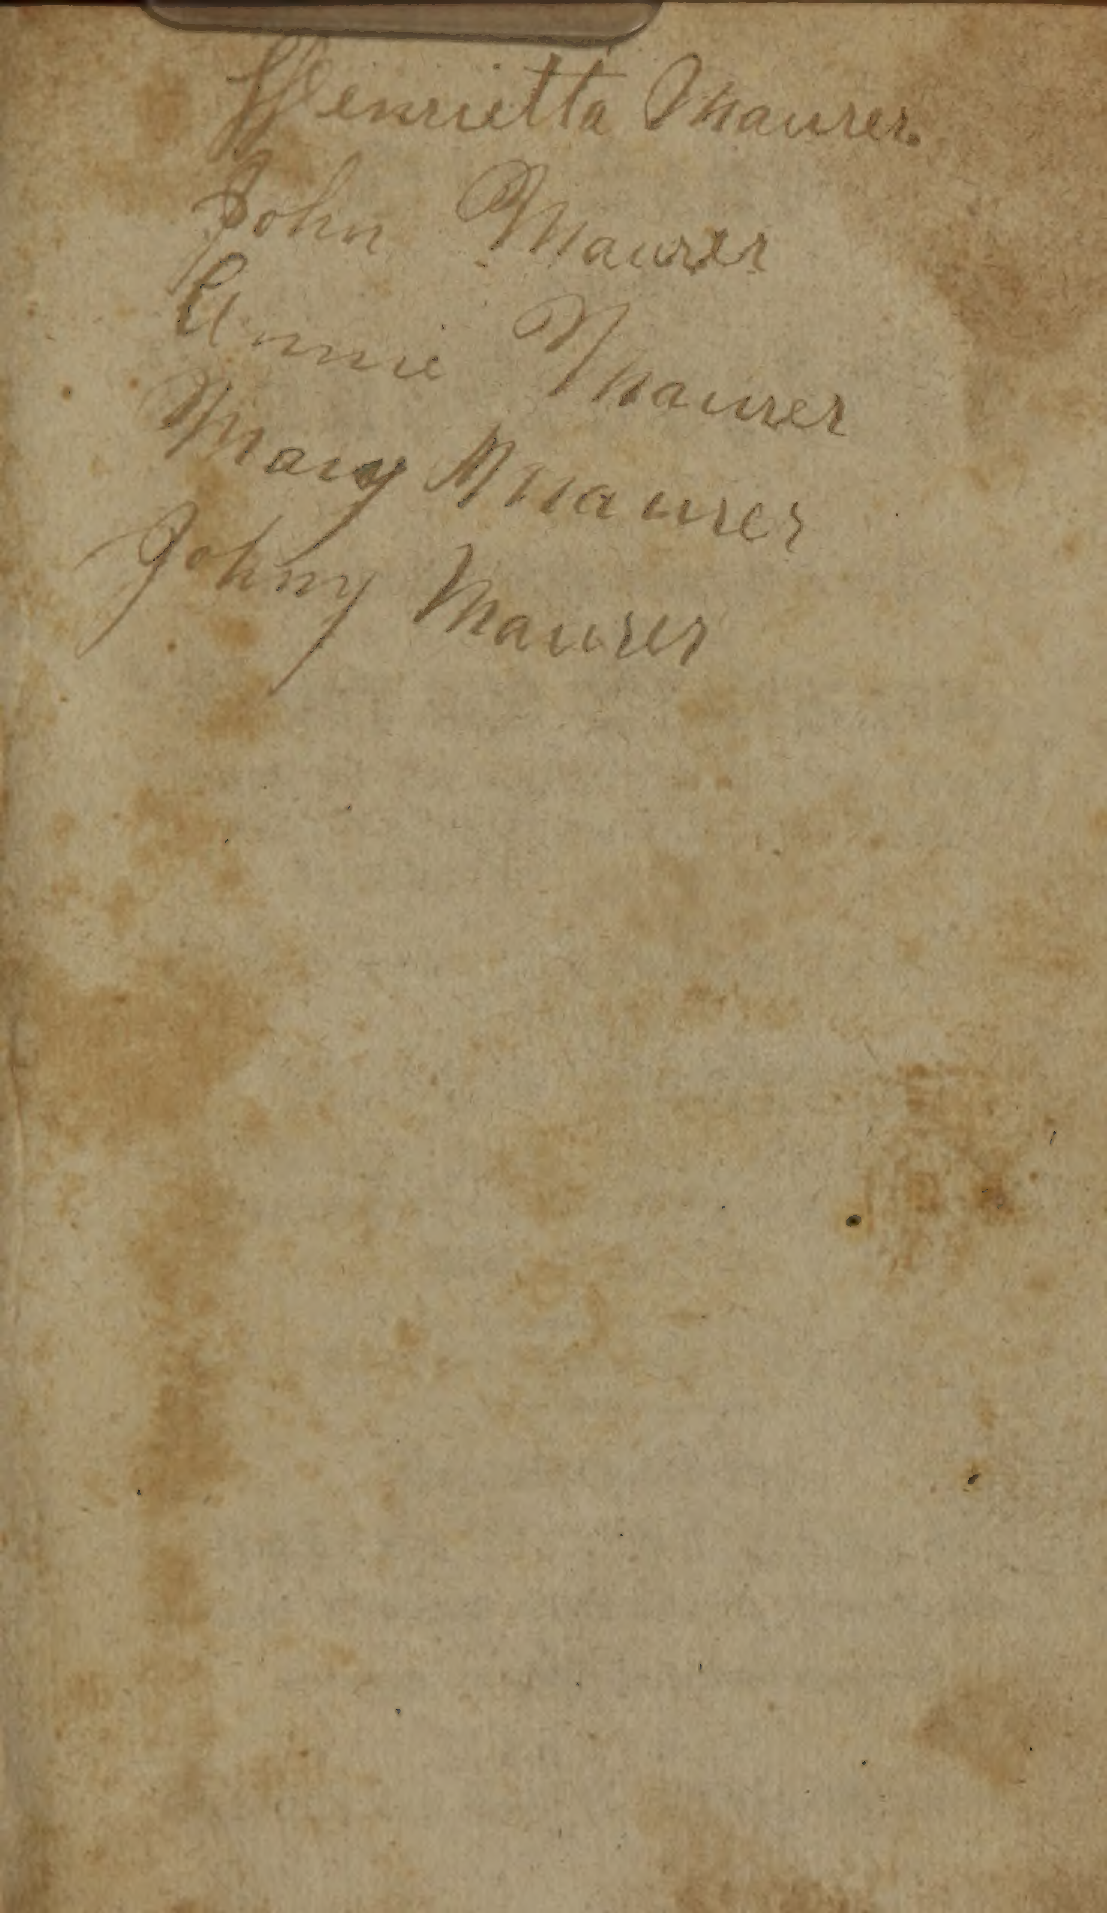 Henrietta Maurer.
John Maurer
Annie Maurer
Mary Maurer
Johny Maurer